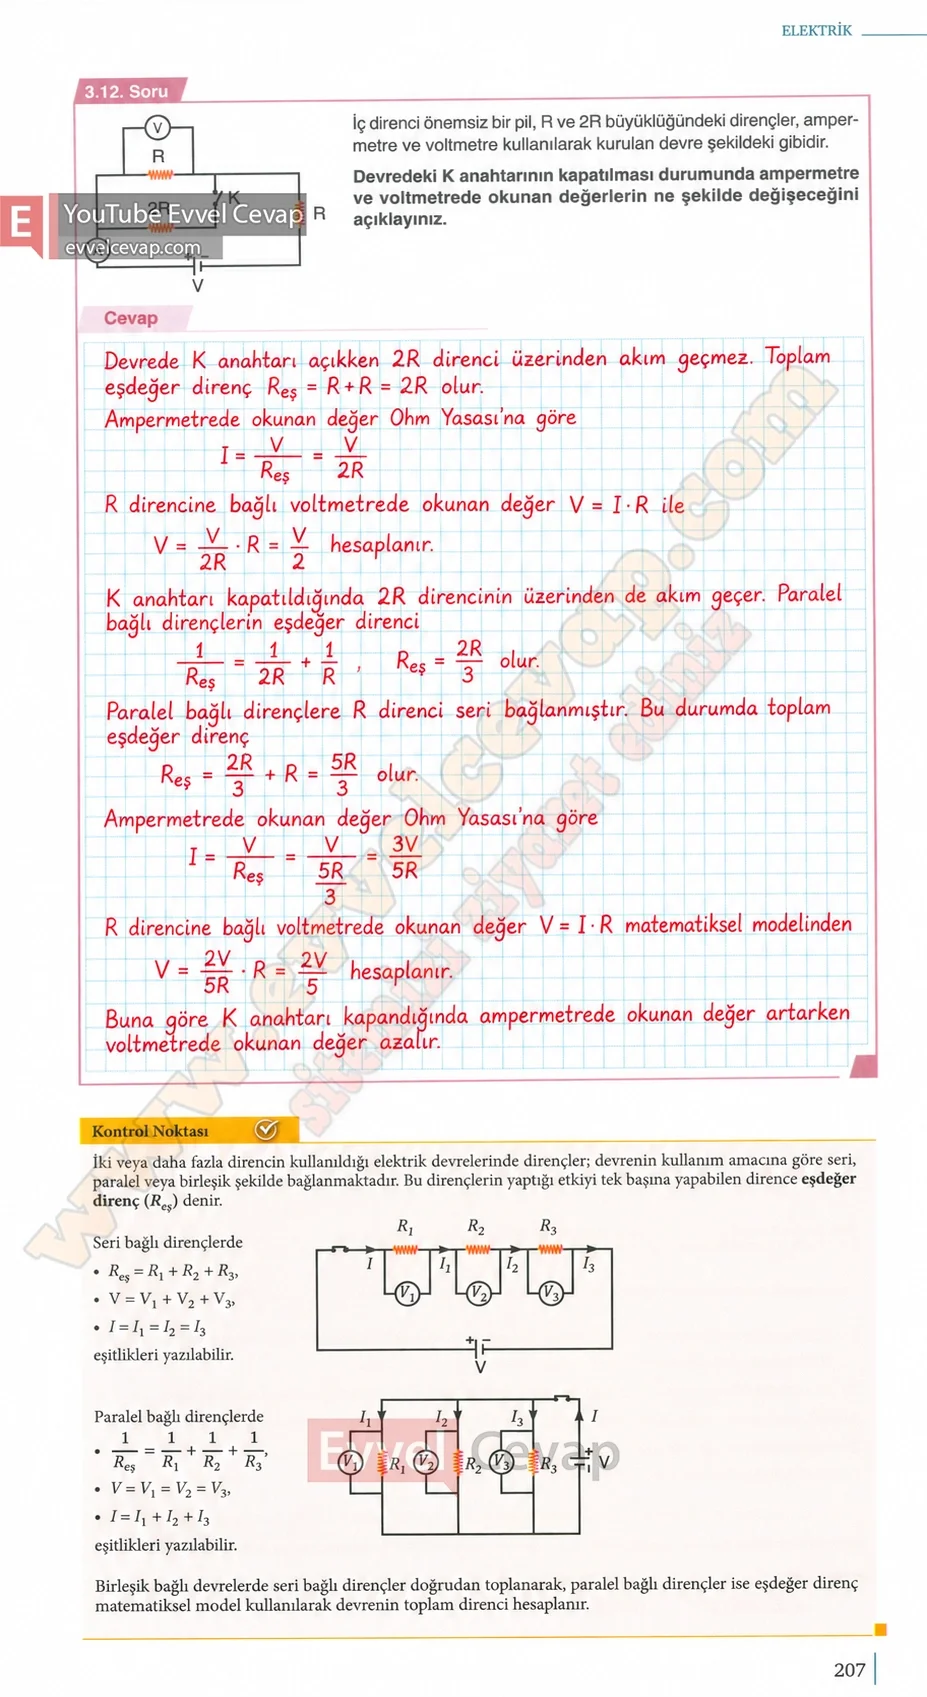 ELEKTRİK
3.12. Soru
V
R
K
2R
R
V
İç direnci önemsiz bir pil, R ve 2R büyüklüğündeki dirençler, amper-
metre ve voltmetre kullanılarak kurulan devre şekildeki gibidir.
Devredeki K anahtarının kapatılması durumunda ampermetre
ve voltmetrede okunan değerlerin ne şekilde değişeceğini
açıklayınız.
E YouTube Evvel Cevap
evvelcevap.com
Cevap
Devrede K anahtarı açıkken 2R direnci üzerinden akım geçmez. Toplam
eşdeğer direnç Reş = R + R = 2R olur.
Ampermetrede okunan değer Ohm Yasası'na göre
I = V/Reş = V/2R
R direncine bağlı voltmetrede okunan değer V = I·R ile
V = V/2R · R = V/2 hesaplanır.
K anahtarı kapatıldığında 2R direncinin üzerinden de akım geçer. Paralel
bağlı dirençlerin eşdeğer direnci
1/Reş = 1/2R + 1/R , Reş = 2R/3 olur.
Paralel bağlı dirençlere R direnci seri bağlanmıştır. Bu durumda toplam
eşdeğer direnç
Reş = 2R/3 + R = 5R/3 olur.
Ampermetrede okunan değer Ohm Yasası'na göre
I = V/Reş = V/(5R/3) = 3V/5R
R direncine bağlı voltmetrede okunan değer V = I·R matematiksel modelinden
V = 2V/5R · R = 2V/5 hesaplanır.
Buna göre K anahtarı kapandığında ampermetrede okunan değer artarken
voltmetrede okunan değer azalır.
www.evvelcevap.com
sitemizi ziyaret ediniz
Kontrol Noktası
İki veya daha fazla direncin kullanıldığı elektrik devrelerinde dirençler; devrenin kullanım amacına göre seri,
paralel veya birleşik şekilde bağlanmaktadır. Bu dirençlerin yaptığı etkiyi tek başına yapabilen dirence eşdeğer
direnç (Reş) denir.
Seri bağlı dirençlerde
• Reş = R1 + R2 + R3,
• V = V1 + V2 + V3,
• I = I1 = I2 = I3
eşitlikleri yazılabilir.
R1 R2 R3
I I1 I2 I3
V1 V2 V3
+ -
V
Paralel bağlı dirençlerde
• 1/Reş = 1/R1 + 1/R2 + 1/R3,
• V = V1 = V2 = V3,
• I = I1 + I2 + I3
eşitlikleri yazılabilir.
I1 I2 I3 I
V1 R1 V2 R2 V3 R3 + - V
Evvel Cevap
Birleşik bağlı devrelerde seri bağlı dirençler doğrudan toplanarak, paralel bağlı dirençler ise eşdeğer direnç
matematiksel model kullanılarak devrenin toplam direnci hesaplanır.
207